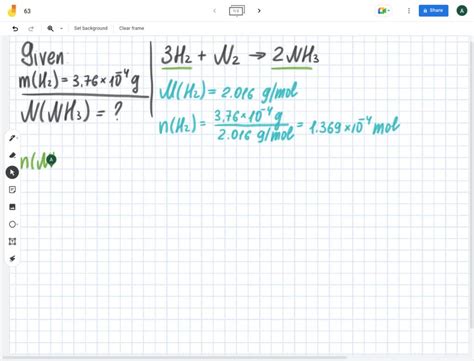 63
1/1
Share
A
Set background
Clear frame
Given
m(H₂) = 3.76 × 10⁻⁴ g
N(NH₃) = ?
3H₂ + N₂ → 2NH₃
M(H₂) = 2.016 g/mol
n(H₂) = 3.76 × 10⁻⁴ g / 2.016 g/mol = 1.369 × 10⁻⁴ mol
n(N
A